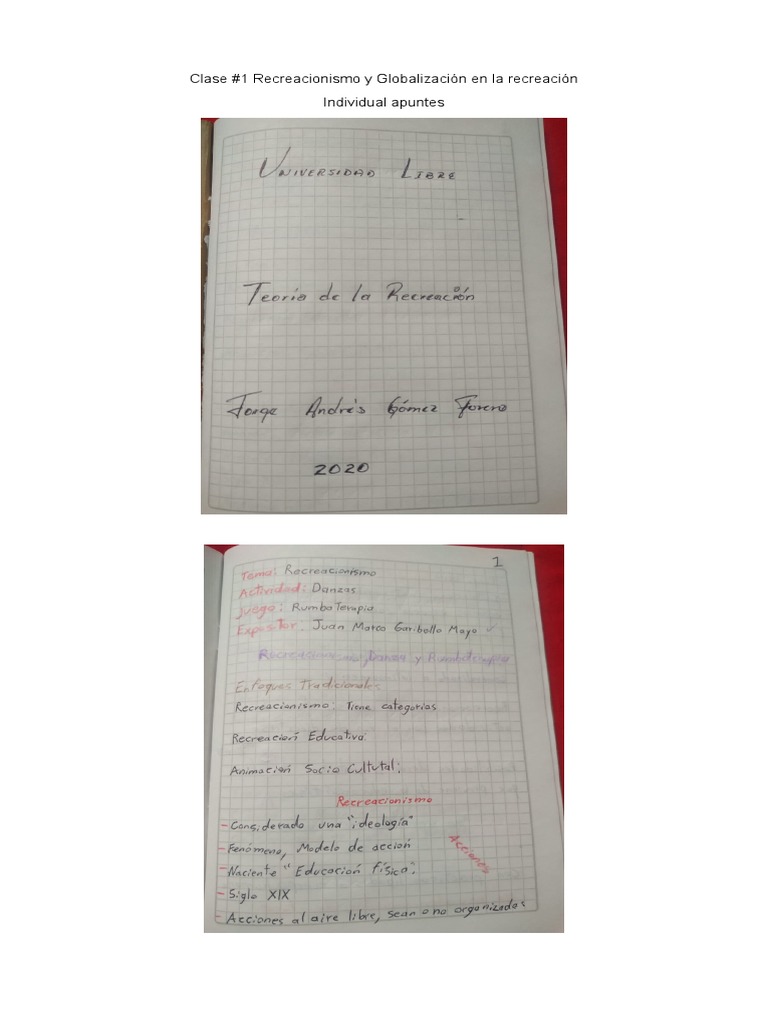 Clase #1 Recreacionismo y Globalización en la recreación
Individual apuntes
UNIVERSIDAD LIBRE
Teoría de la Recreación
Jorge Andrés Gómez Forero
2020
1
Tema: Recreacionismo
Actividad: Danzas
Juego: RumbaTerapia
Expositor: Juan Marco Garibello Mayo
Danza y Rumbaterapia
Enfoques Tradicionales
Recreacionismo: Tiene categorias
Recreación Educativa:
Animación Socio Cultutal:
Recreacionismo
- Considerado una "ideología"
- Fenómeno, Modelo de acción
- Naciente "Educación física:
- Siglo XIX
- Acciones al aire libre, sean o no organizadas
Acciones